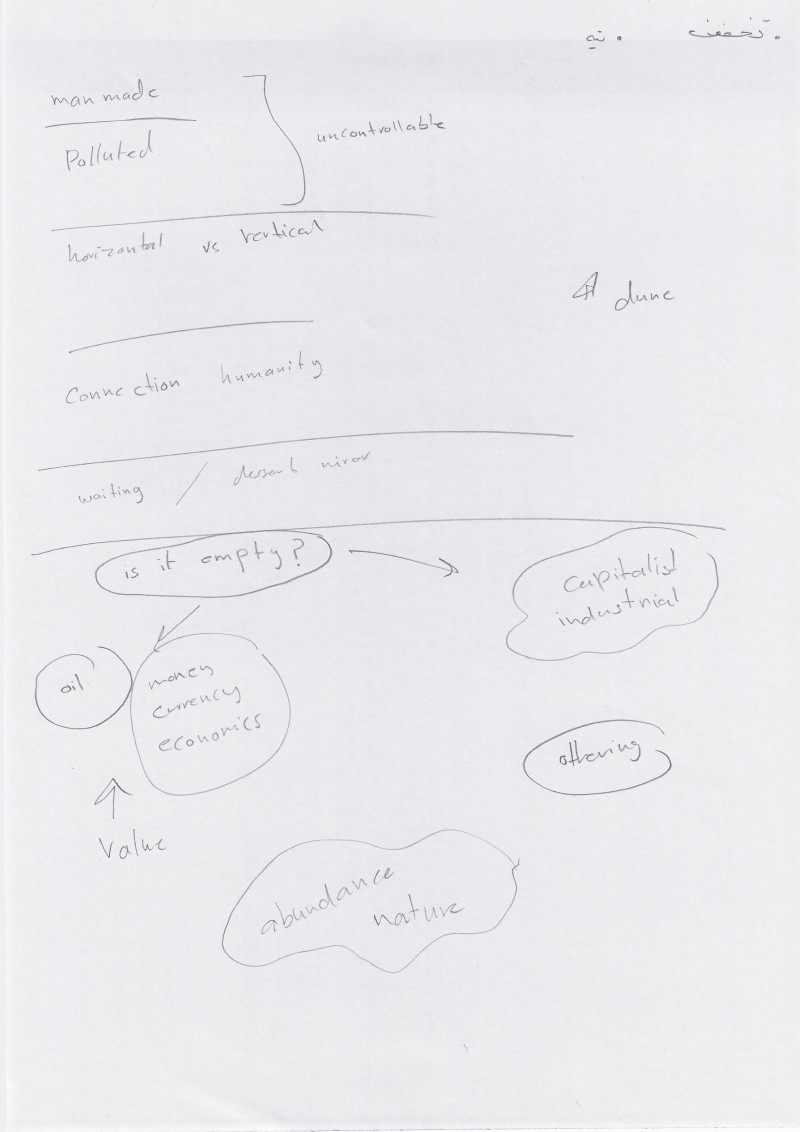 man made
Polluted
uncontrollable
horizontal vs vertical
dune
Connection humanity
waiting /
is it empty?
capitalist
industrial
oil
money
currency
economics
othering
Value
abundance
nature